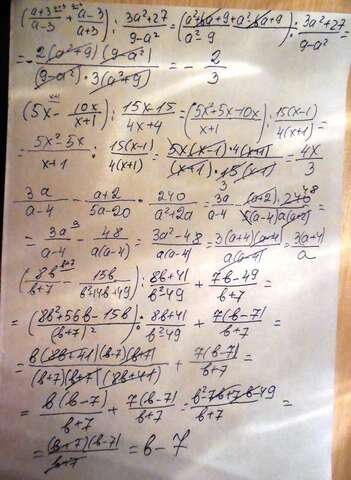 ((a+3)/(a-3) + (a-3)/(a+3)) : (3a²+27)/(9-a²) = ((a²+6a+9+a²-6a+9)/(a²-9)) : (3a²+27)/(9-a²) =
= -(2(a²+9)(9-a²))/((9-a²)·3(a²+9)) = -2/3
(5x - 10x/(x+1)) : (15x-15)/(4x+4) = ((5x²+5x-10x)/(x+1)) : 15(x-1)/(4(x+1)) =
= (5x²-5x)/(x+1) : 15(x-1)/(4(x+1)) = (5x(x-1)·4(x+1))/((x+1)·15(x-1)) = 4x/3
3a/(a-4) - (a+2)/(5a-20) · 240/(a²+2a) = 3a/(a-4) - ((a+2)·240)/(5(a-4)a(a+2)) =
= 3a/(a-4) - 48/(a(a-4)) = (3a²-48)/(a(a-4)) = 3(a+4)(a-4)/(a(a-4)) = 3(a+4)/a
(8b/(b+7) - 15b/(b²+14b+49)) : (8b+41)/(b²-49) + (7b-49)/(b+7) =
= ((8b²+56b-15b)/(b+7)²) : (8b+41)/(b²-49) + 7(b-7)/(b+7) =
= b(8b+41)(b-7)(b+7)/((b+7)(b+7)(8b+41)) + 7(b-7)/(b+7) =
= b(b-7)/(b+7) + 7(b-7)/(b+7) = (b²-7b+7b-49)/(b+7) =
= (b+7)(b-7)/(b+7) = b-7